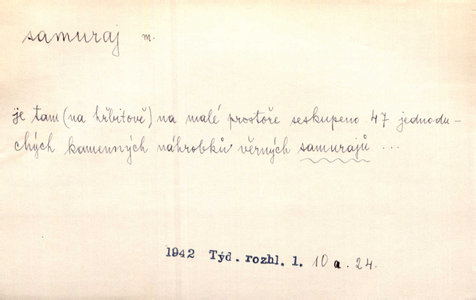 samuraj m.
je tam (na hřbitově) na malé prostoře seskupeno 47 jednodu-
chých kamenných náhrobků věrných samurajů ...
1942 Týd. rozhl. 1. 10 a. 24.